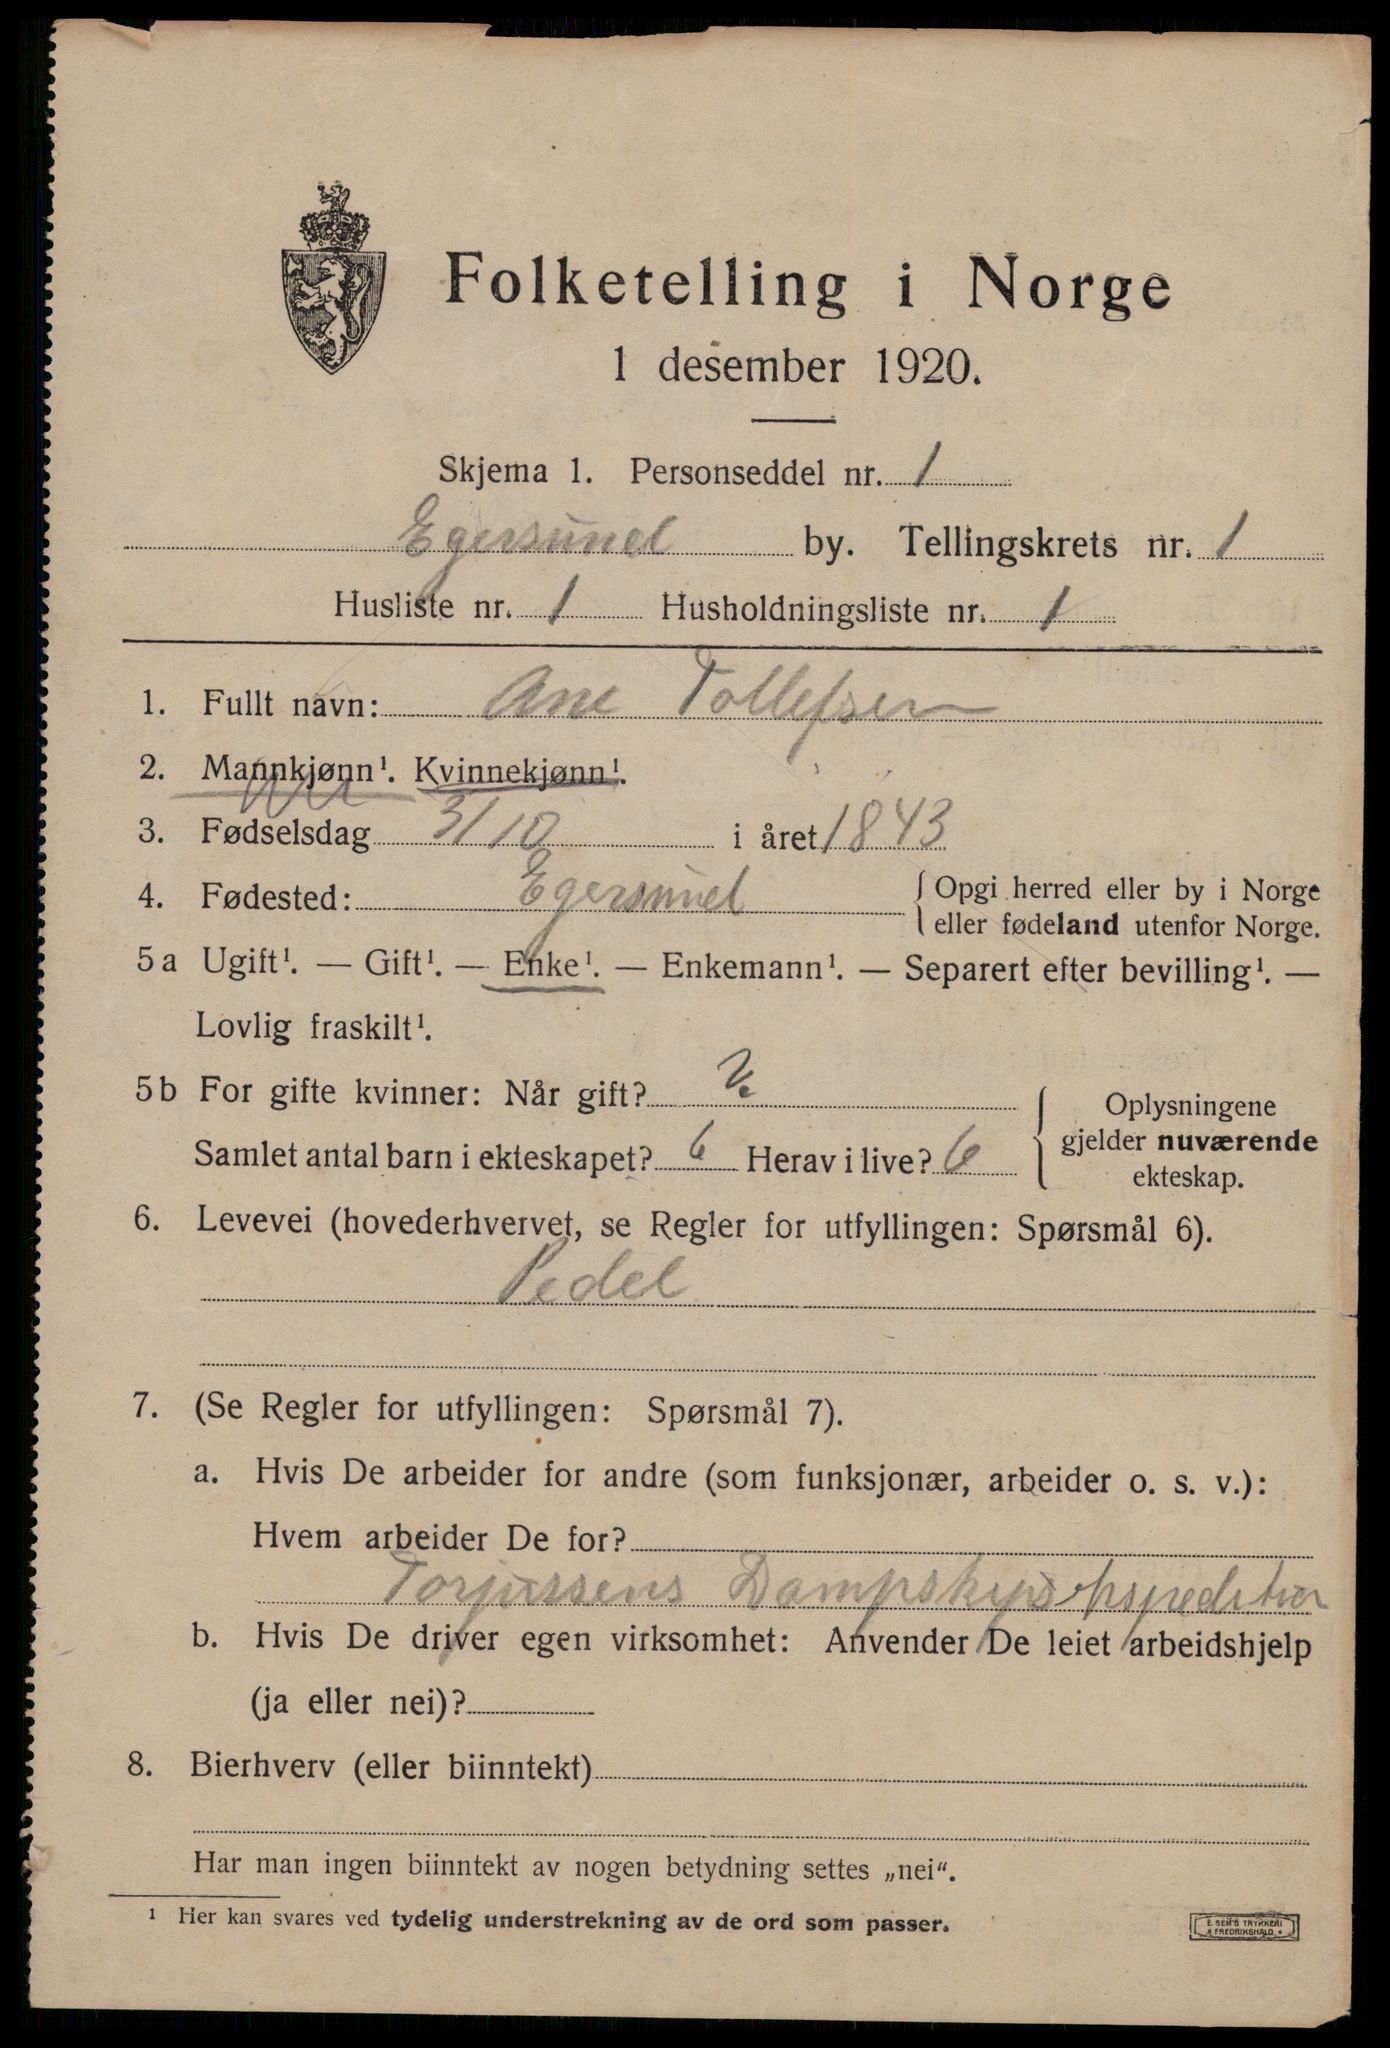 Folketelling i Norge
1 desember 1920.
Skjema 1. Personseddel nr. 1
Egersund by. Tellingskrets nr. 1
Husliste nr. 1 Husholdningsliste nr. 1
1. Fullt navn: Ane Tollefsen
2. Mannkjønn¹. Kvinnekjønn¹.
3. Fødselsdag 3/10 i året 1843
4. Fødested: Egersund { Opgi herred eller by i Norge
eller fødeland utenfor Norge.
5a Ugift¹. — Gift¹. — Enke¹. — Enkemann¹. — Separert efter bevilling¹. —
Lovlig fraskilt¹.
5b For gifte kvinner: Når gift?
Samlet antal barn i ekteskapet? 6 Herav i live? 6
Oplysningene
gjelder nuværende
ekteskap.
6. Levevei (hovederhvervet, se Regler for utfyllingen: Spørsmål 6).
Pedel
7. (Se Regler for utfyllingen: Spørsmål 7).
a. Hvis De arbeider for andre (som funksjonær, arbeider o. s. v.):
Hvem arbeider De for?
Torjussens
b. Hvis De driver egen virksomhet: Anvender De leiet arbeidshjelp
(ja eller nei)?
8. Bierhverv (eller biinntekt)
Har man ingen biinntekt av nogen betydning settes „nei“.
¹ Her kan svares ved tydelig understrekning av de ord som passer.
E. SEM'S TRYKKERI
FREDRIKSHALD